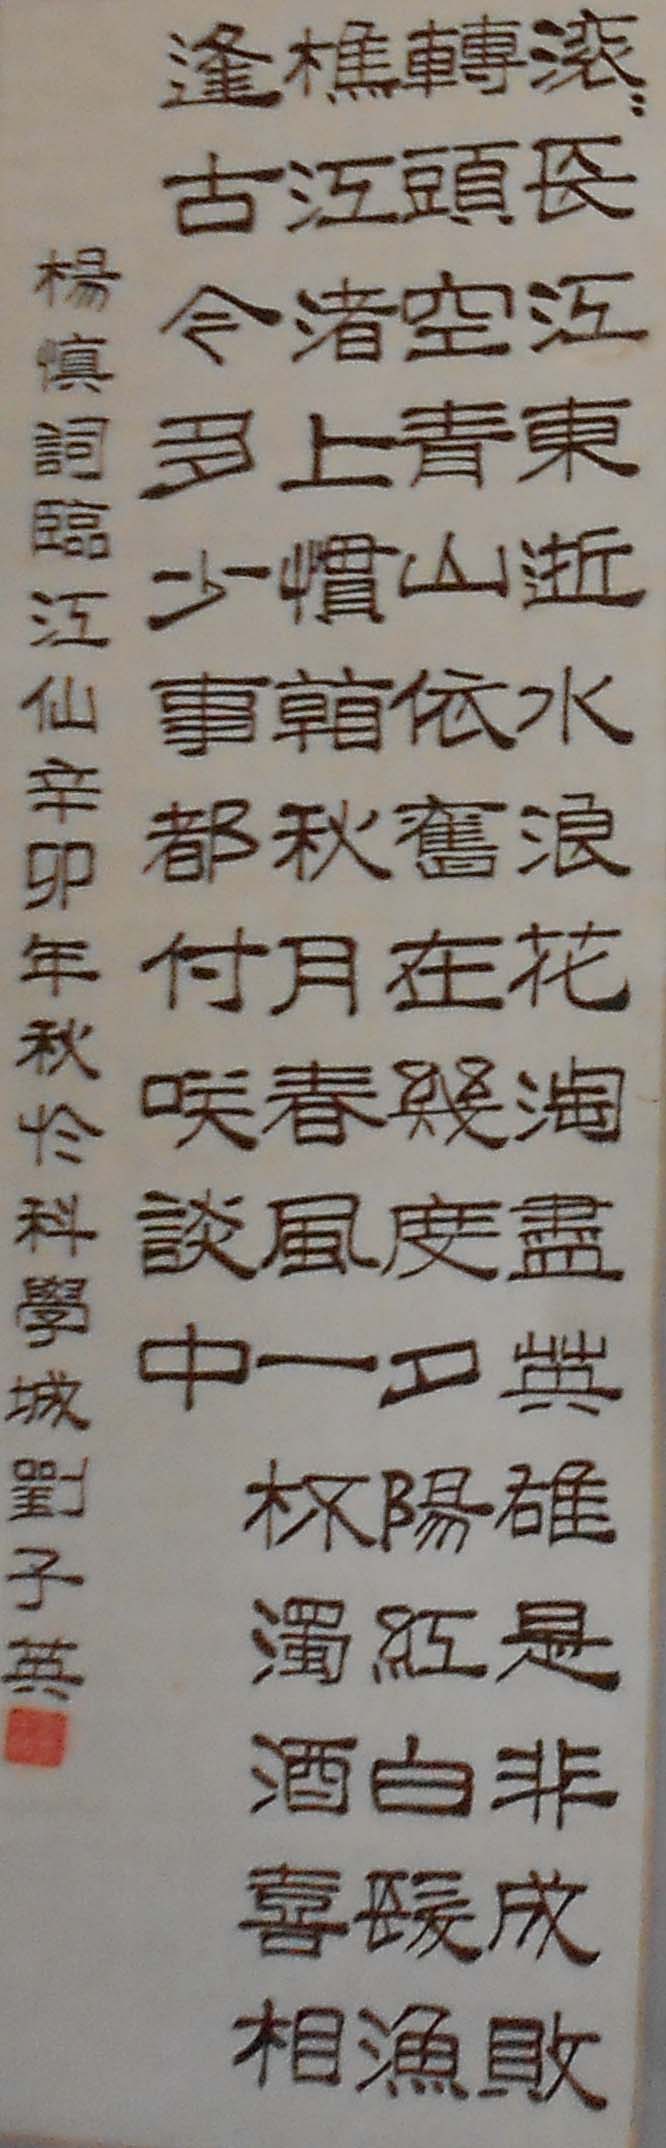 滚〻長江東逝水浪花淘盡英雄是非成敗
轉頭空青山依舊在幾度夕陽紅白髮漁
樵江渚上慣看秋月春風一杯濁酒喜相
逢古今多少事都付咲談中
楊慎詞臨江仙辛卯年秋於科學城劉子英